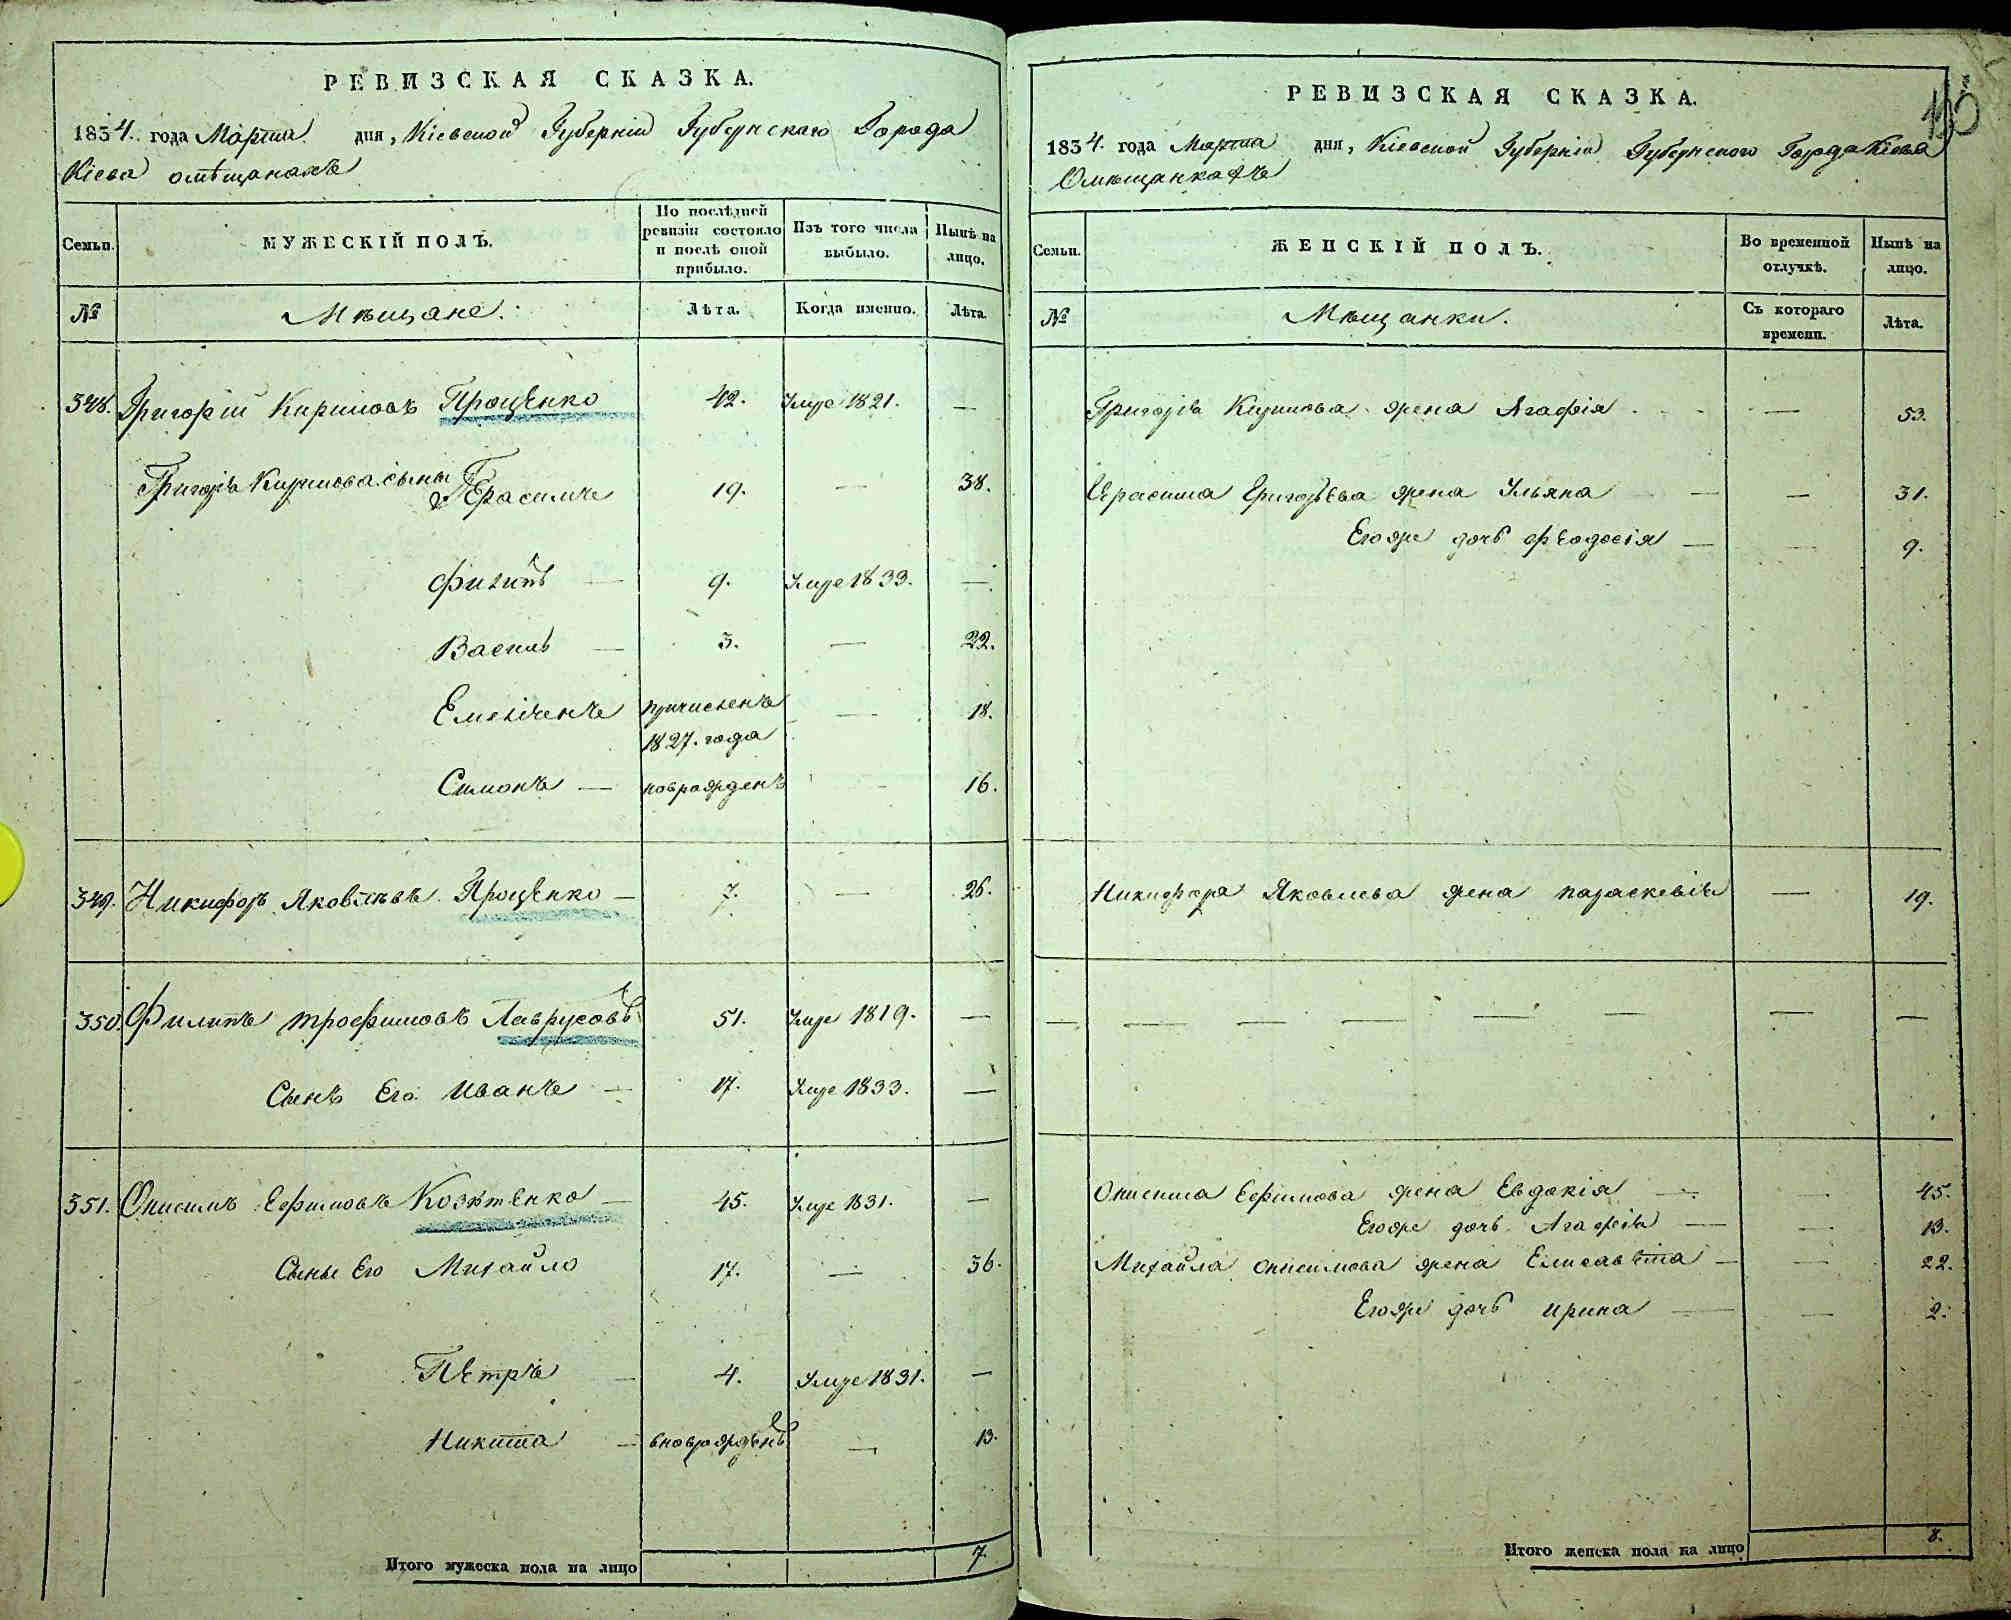 РЕВИЗСКАЯ СКАЗКА.
1834. года Марта дня, Кіевской Губерніи Губернскаго Города
Кіева омѣщанахъ
Семьи.
МУЖЕСКІЙ ПОЛЪ.
По послѣдней ревизіи состояло и послѣ оной прибыло.
Изъ того числа выбыло.
Нынѣ на лицо.
№
Мѣщане.
Лѣта.
Когда именно.
Лѣта.
348. Григорій Кириловъ Проценко 42. Умре 1821. —
Григорія Кирилова сыны Герасимъ 19. — 38.
Филипъ — 9. Умре 1833. —
Василь — 3. — 22.
Емеліянъ причисленъ 1827. года — 18.
Симонъ — новрожденъ 16.
349. Никифоръ Яковлевъ Проценко — 7. — 26.
350. Филипъ Трофимовъ Лаврусовъ 51. Умре 1819. —
Сынъ Его Иванъ — 17. Умре 1833. —
351. Онисимъ Ефимовъ Козѣтенко — 45. Умре 1831. —
Сыны Его Михайло 17. — 36.
Петръ — 4. Умре 1831. —
Никита — вноврожденъ — 13.
Итого мужеска пола на лицо 7.
РЕВИЗСКАЯ СКАЗКА.
1834. года Марта дня, Кіевской Губерніи Губернскаго Города Кіева
Омѣщанкахъ
Семьи.
ЖЕНСКІЙ ПОЛЪ.
Во временной отлучкѣ.
Нынѣ на лицо.
№
Мѣщанки.
Съ котораго времени.
Лѣта.
Григорія Кирилова жена Агафія — 53.
Герасима Григорьева жена Ульяна — — 31.
Егоже дочь Феодосія — — 9.
Никифора Яковлева жена Параскевія — 19.
— — — — — — — —
Онисима Ефимова жена Евдокія — — 45.
Егоже дочь Агафія — — 13.
Михайла Онисимова жена Елисавѣта — — 22.
Егоже дочь Ирина — — 2.
Итого женска пола на лицо 8.